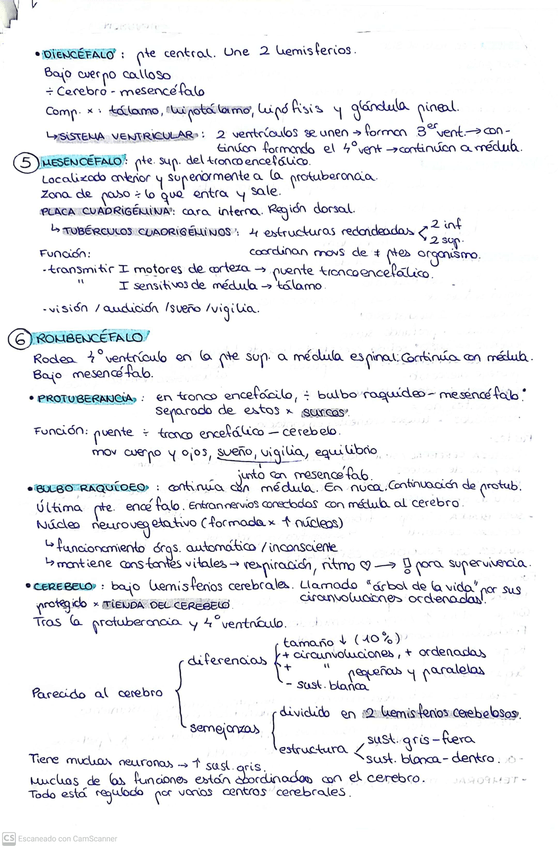 • DIENCÉFALO: pte central. Une 2 hemisferios.
Bajo cuerpo calloso
÷ Cerebro - mesencéfalo
Comp. x: tálamo, hipotálamo, hipófisis y glándula pineal.
↳ SISTEMA VENTRICULAR: 2 ventrículos se unen → forman 3er vent. → con-
tinúan formando el 4º vent → continúan a médula.
5 MESENCÉFALO: pte sup. del tronco encefálico.
Localizado anterior y superiormente a la protuberancia.
Zona de paso ÷ lo que entra y sale.
PLACA CUADRIGÉMINA: cara interna. Región dorsal.
↳ TUBÉRCULOS CUADRIGÉMINOS: 4 estructuras redondeadas < 2 inf
2 sup.
Función: coordinan movs de ≠ ptes organismo.
· transmitir I motores de corteza → puente troncoencefálico.
" I sensitivos de médula → tálamo
· visión / audición / sueño / vigilia.
6 ROMBENCÉFALO
Rodea 4º ventrículo en la pte sup. a médula espinal. Continúa con médula.
Bajo mesencéfalo.
• PROTUBERANCIA: en tronco encefácilo, ÷ bulbo raquídeo - mesencéfalo.
separado de estos x surcos.
Función: puente ÷ tronco encefálico - cerebelo.
mov cuerpo y ojos, sueño, vigilia, equilibrio
junto con mesencéfalo.
• BULBO RAQUÍDEO: continúa con médula. En nuca. Continuación de protub.
Última pte. encéfalo. Entran nervios conectados con médula al cerebro.
Núcleo neurovegetativo (formada x ↑ núcleos)
↳ funcionamiento órgs. automático / inconsciente
↳ mantiene constantes vitales → respiración, ritmo ♡ → ! para supervivencia.
• CEREBELO: bajo hemisferios cerebrales. Llamado "árbol de la vida" por sus
protegido x TIENDA DEL CEREBELO. circunvoluciones ordenadas.
Tras la protuberancia y 4º ventrículo.
Parecido al cerebro
diferencias
tamaño ↓ (10%)
+ circunvoluciones, + ordenadas
+ " pequeñas y paralelas
- sust. blanca
semejanzas
dividido en 2 hemisferios cerebelosos.
estructura < sust. gris - fuera
sust. blanca - dentro.
Tiene muchas neuronas → ↑ sust. gris.
Muchas de las funciones están coordinadas con el cerebro.
Todo está regulado por varios centros cerebrales.
CS Escaneado con CamScanner